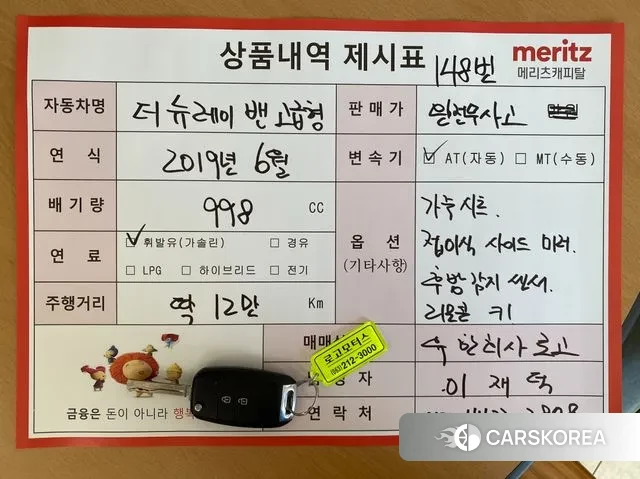 상품내역 제시표
148번
meritz
메리츠캐피탈
자동차명 더 뉴레이 밴 고급형
판매가 완전무사고
연식 2019년 6월
변속기 ☑ AT(자동) □ MT(수동)
배기량 998 CC
연료 ☑ 휘발유(가솔린) □ 경유
□ LPG □ 하이브리드 □ 전기
옵션
(기타사항)
가죽시트.
접이식 사이드 미러.
후방 감지 센서.
리모콘 키
주행거리 딱 12만 Km
매매
로고
자 이재덕
연락처
로고모터스
212-3000
금융은 돈이 아니라 행복
CARSKOREA